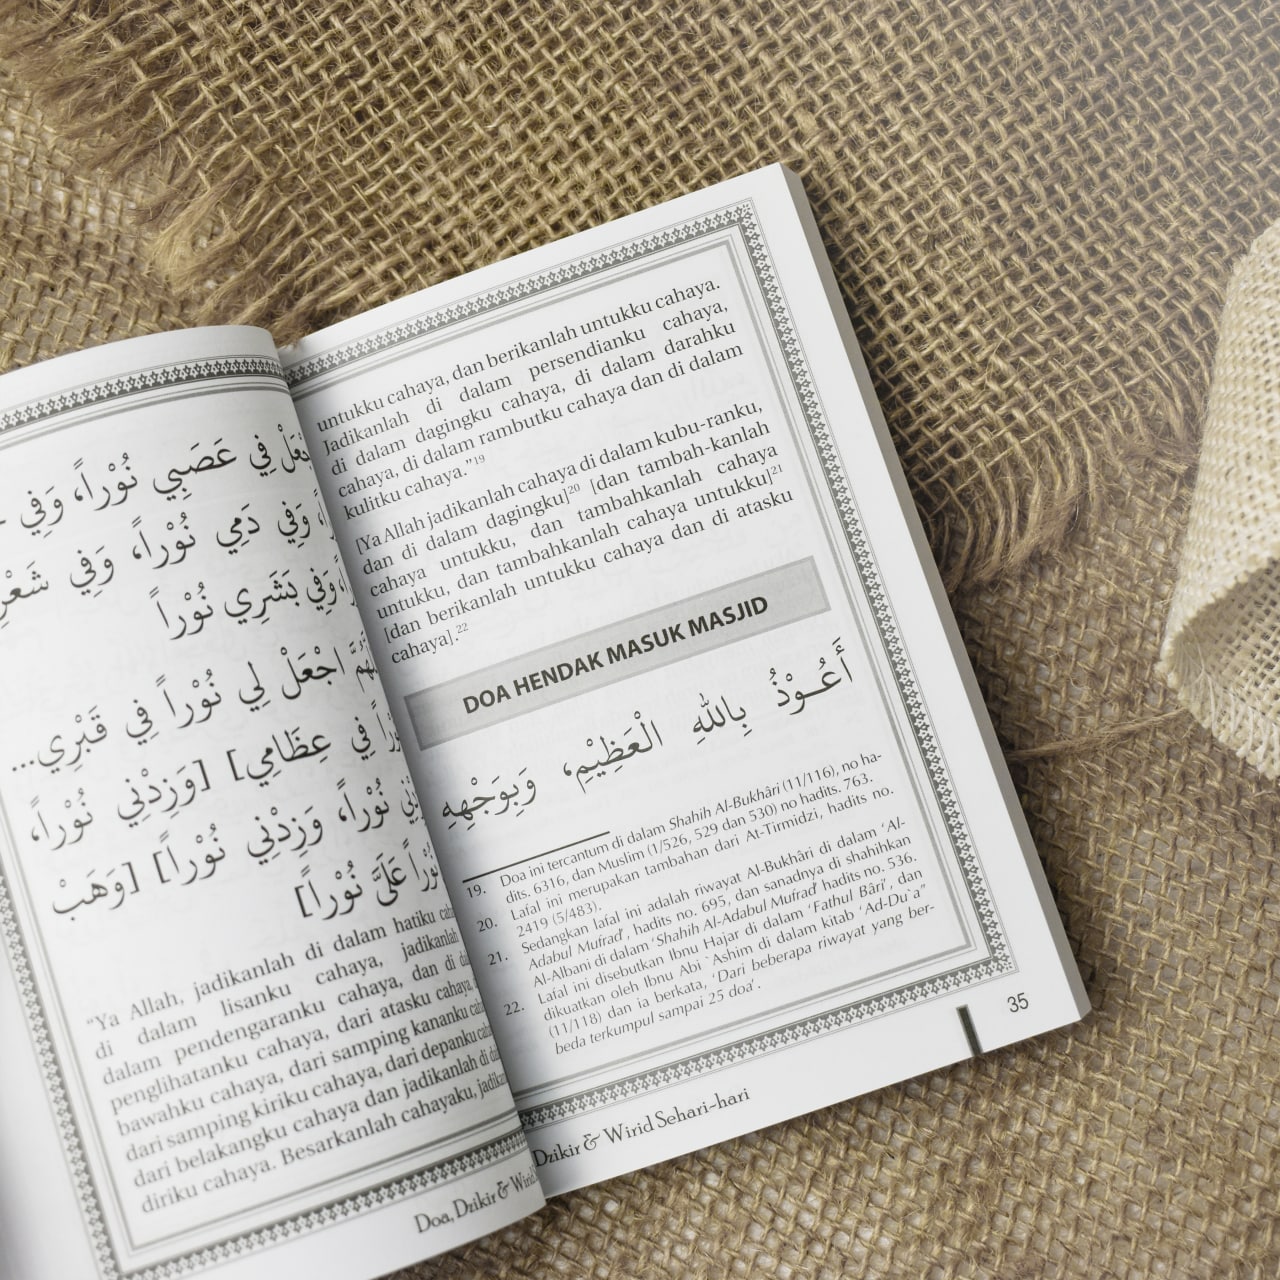 فِي عَصَبِي نُوْراً، وَفِي
وَفِي دَمِي نُوْراً، وَفِي
وَفِي بَشَرِي نُوْراً
اجْعَلْ لِي نُوْراً فِي قَبْرِي...
فِي عِظَامِي] [وَزِدْنِي نُوْراً،
نُوْراً، وَزِدْنِي نُوْراً] [وَهَبْ
نُوْراً عَلَى نُوْراً]
"Ya Allah, jadikanlah di dalam hatiku
di dalam lisanku cahaya, jadikanlah
dalam pendengaranku cahaya, dan di
penglihatanku cahaya, dari atasku cahaya,
bawahku cahaya, dari samping kananku
dari samping kiriku cahaya, dari depanku
dari belakangku cahaya dan jadikanlah di
diriku cahaya. Besarkanlah cahayaku,
Doa, Dzikir & Wirid
untukku cahaya, dan berikanlah untukku cahaya.
Jadikanlah di dalam persendianku cahaya,
di dalam dagingku cahaya, di dalam darahku
cahaya, di dalam rambutku cahaya dan di dalam
kulitku cahaya."19
[Ya Allah jadikanlah cahaya di dalam kubu-ranku,
dan di dalam dagingku]20 [dan tambah-kanlah
cahaya untukku, dan tambahkanlah cahaya
untukku, dan tambahkanlah cahaya untukku]21
[dan berikanlah untukku cahaya dan di atasku
cahaya].22
DOA HENDAK MASUK MASJID
أَعُـوْذُ بِاللهِ الْعَظِيْمِ، وَبِوَجْهِهِ
19. Doa ini tercantum di dalam Shahih Al-Bukhâri (11/116), no ha-
dits. 6316, dan Muslim (1/526, 529 dan 530) no hadits. 763.
20. Lafal ini merupakan tambahan dari At-Tirmidzi, hadits no.
2419 (5/483).
21. Sedangkan lafal ini adalah riwayat Al-Bukhâri di dalam 'Al-
Adabul Mufrad', hadits no. 695, dan sanadnya di shahihkan
Al-Albani di dalam 'Shahih Al-Adabul Mufrad' hadits no. 536.
22. Lafal ini disebutkan Ibnu Hajar di dalam 'Fathul Bâri', dan
dikuatkan oleh Ibnu Abi `Ashim di dalam kitab 'Ad-Du`a"
(11/118) dan ia berkata, 'Dari beberapa riwayat yang ber-
beda terkumpul sampai 25 doa'.
35
Dzikir & Wirid Sehari-hari